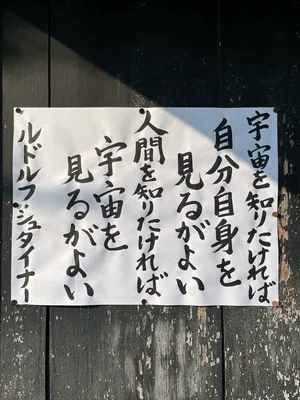 宇宙を知りたければ
自分自身を
見るがよい
人間を知りたければ
宇宙を
見るがよい
ルドルフ・シュタイナー